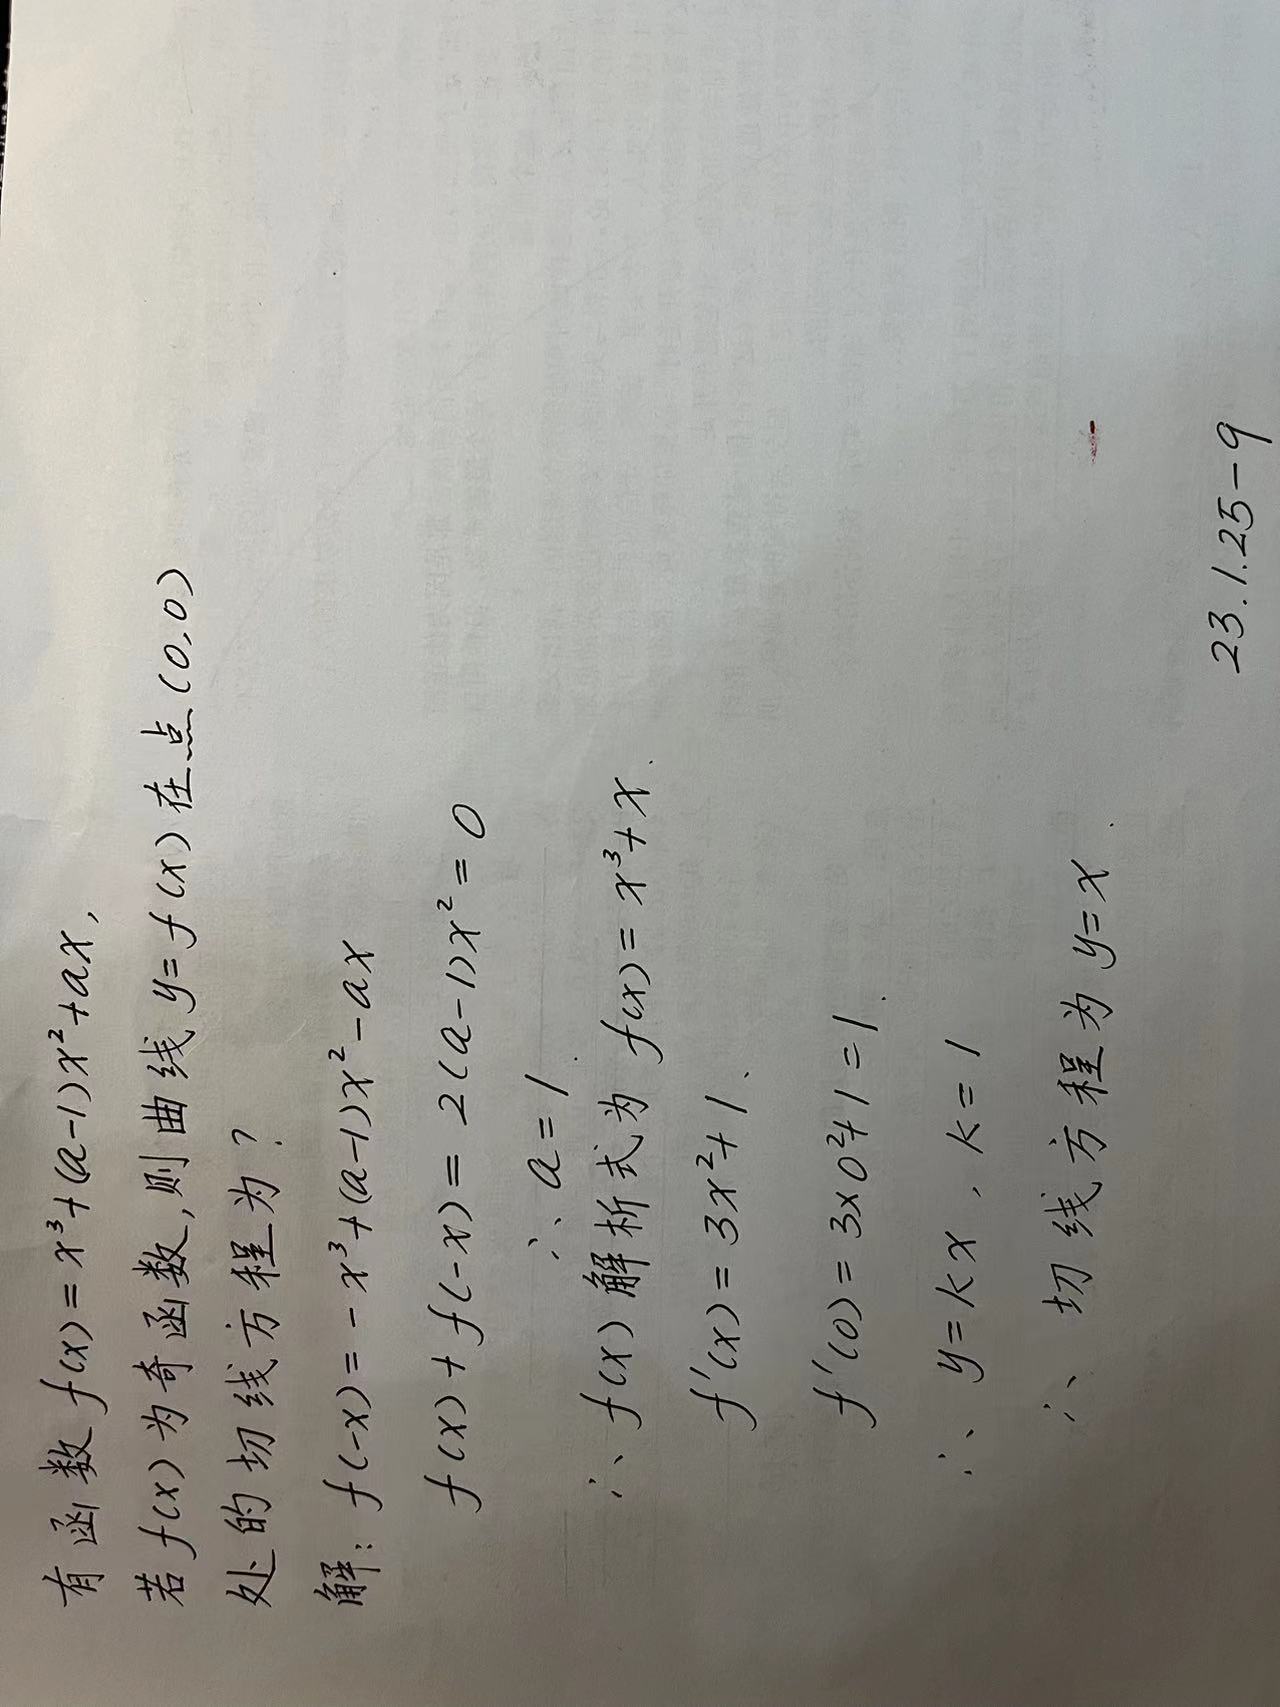 有函数 f(x) = x³+(a-1)x²+ax,
若f(x)为奇函数,则曲线 y=f(x)在点(0,0)
处的切线方程为?
解: f(-x) = -x³+(a-1)x²-ax
f(x)+f(-x) = 2(a-1)x² = 0
∴ a=1.
∴ f(x)解析式为 f(x) = x³+x.
f'(x) = 3x²+1.
f'(0) = 3×0²+1=1.
∴ y=kx, k=1
∴ 切线方程为 y=x.
23.1.25-9